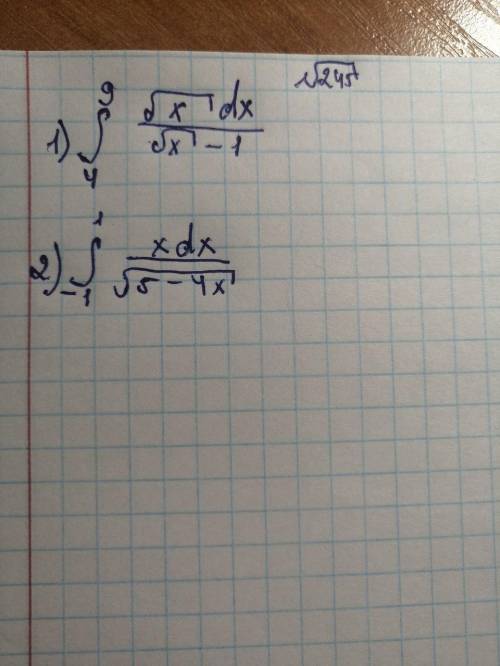 √245
1) ∫₄⁹ √x dx / (√x − 1)
2) ∫₋₁¹ x dx / √(5 − 4x)